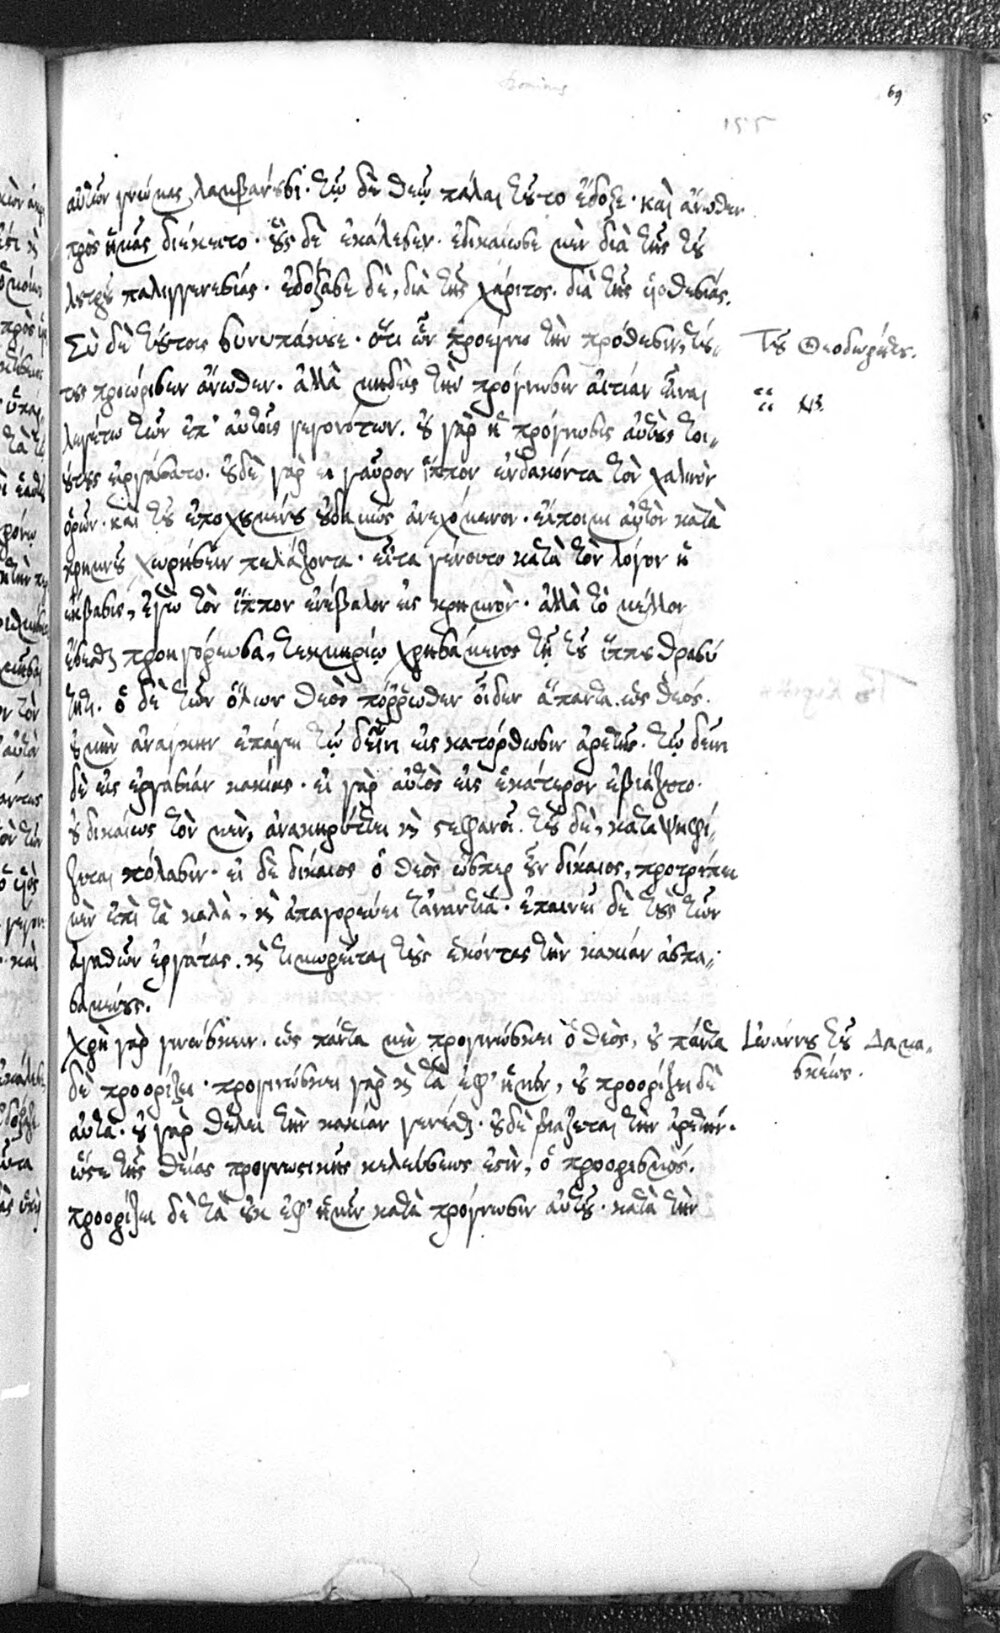 69
155
αὐτῶν γνώμας λαμβάνουσι· τῷ δὲ θεῷ πάλαι τοῦτο ἔδοξε· καὶ ἄνωθεν
πρὸς ἡμᾶς διέκειτο· οὓς δὲ ἐκάλεσεν· ἐδικαίωσε μὲν διὰ τῆς τοῦ
λουτροῦ παλιγγενεσίας· ἐδόξασε δὲ, διὰ τῆς χάριτος· διὰ τῆς υἱοθεσίας.
Σὺ δὲ τούτοις συνυπάκουε· ὅτι ὧν προέγνω τὴν πρόθεσιν, τού„
τους προώρισεν ἄνωθεν· ἀλλὰ μηδεὶς τὴν πρόγνωσιν αἰτίαν εἶναι
λεγέτω τῶν ἐπ' αὐτοῖς γεγονότων. οὐ γὰρ ἡ πρόγνωσις αὐτοὺς τοι„
ούτους εἰργάσατο. οὐδὲ γὰρ εἰ γαῦρον ἵππον ἐνδακόντα τὸν χαλινὸν
ὁρῶν· καὶ τοῦ ἐποχουμένου οὐδαμῶς ἀνεχόμενον· εἴποιμι αὐτὸν κατὰ
κρημνοῦ χωρήσειν πελάζοντα· εἶτα γένοιτο κατὰ τὸν λόγον ἡ
ἔκβασις, ἐγὼ τὸν ἵππον ἐνέβαλον εἰς κρημνὸν· ἀλλὰ τὸ μέλλον
ἔσεσθαι προηγόρευσα, τεκμηρίῳ χρησάμενος τῇ τοῦ ἵππου θρασύ
τητι. ὁ δὲ τῶν ὅλων θεὸς πόρρωθεν οἶδεν ἅπαντα ὡς θεός.
οὐ μὴν ἀνάγκην ἐπάγει τῷ δεῖνι εἰς κατόρθωσιν ἀρετῆς· τῷ δεῖνι
δὲ εἰς ἐργασίαν κακίας· εἰ γὰρ αὐτὸς εἰς ἑκάτερον ἐβιάζετο·
οὐ δικαίως τὸν μὲν, ἀνακηρύττει καὶ στεφανοῖ. τοῦ δὲ, καταψηφί„
ζεται κόλασιν· εἰ δὲ δίκαιος ὁ θεὸς ὥσπερ οὖν δίκαιος, προτρέπει
μὲν ἐπὶ τὰ καλὰ, καὶ ἀπαγορεύει τἀναντία· ἐπαινεῖ δὲ τοὺς τῶν
ἀγαθῶν ἐργάτας. καὶ τιμωρεῖται τοὺς ἑκόντας τὴν κακίαν ἀσπα„
σαμένους.
Χρὴ γὰρ γινώσκειν· ὡς πάντα μὲν προγινώσκει ὁ θεὸς, οὐ πάντα
δὲ προορίζει· προγινώσκει γὰρ καὶ τὰ ἐφ' ἡμῖν, οὐ προορίζει δὲ
αὐτά· οὐ γὰρ θέλει τὴν κακίαν γενέσθαι· οὐδὲ βιάζεται τὴν ἀρετήν·
ὥστε τῆς θείας προγνωστικῆς κελεύσεως ἐστὶν, ὁ προορισμός.
προορίζει δὲ τὰ οὐκ ἐφ' ἡμῖν κατὰ πρόγνωσιν αὐτοῦ· κατὰ τὴν
Τοῦ Θεοδωρήτου.
Ἰωάννου τοῦ Δαμα„
σκέως.